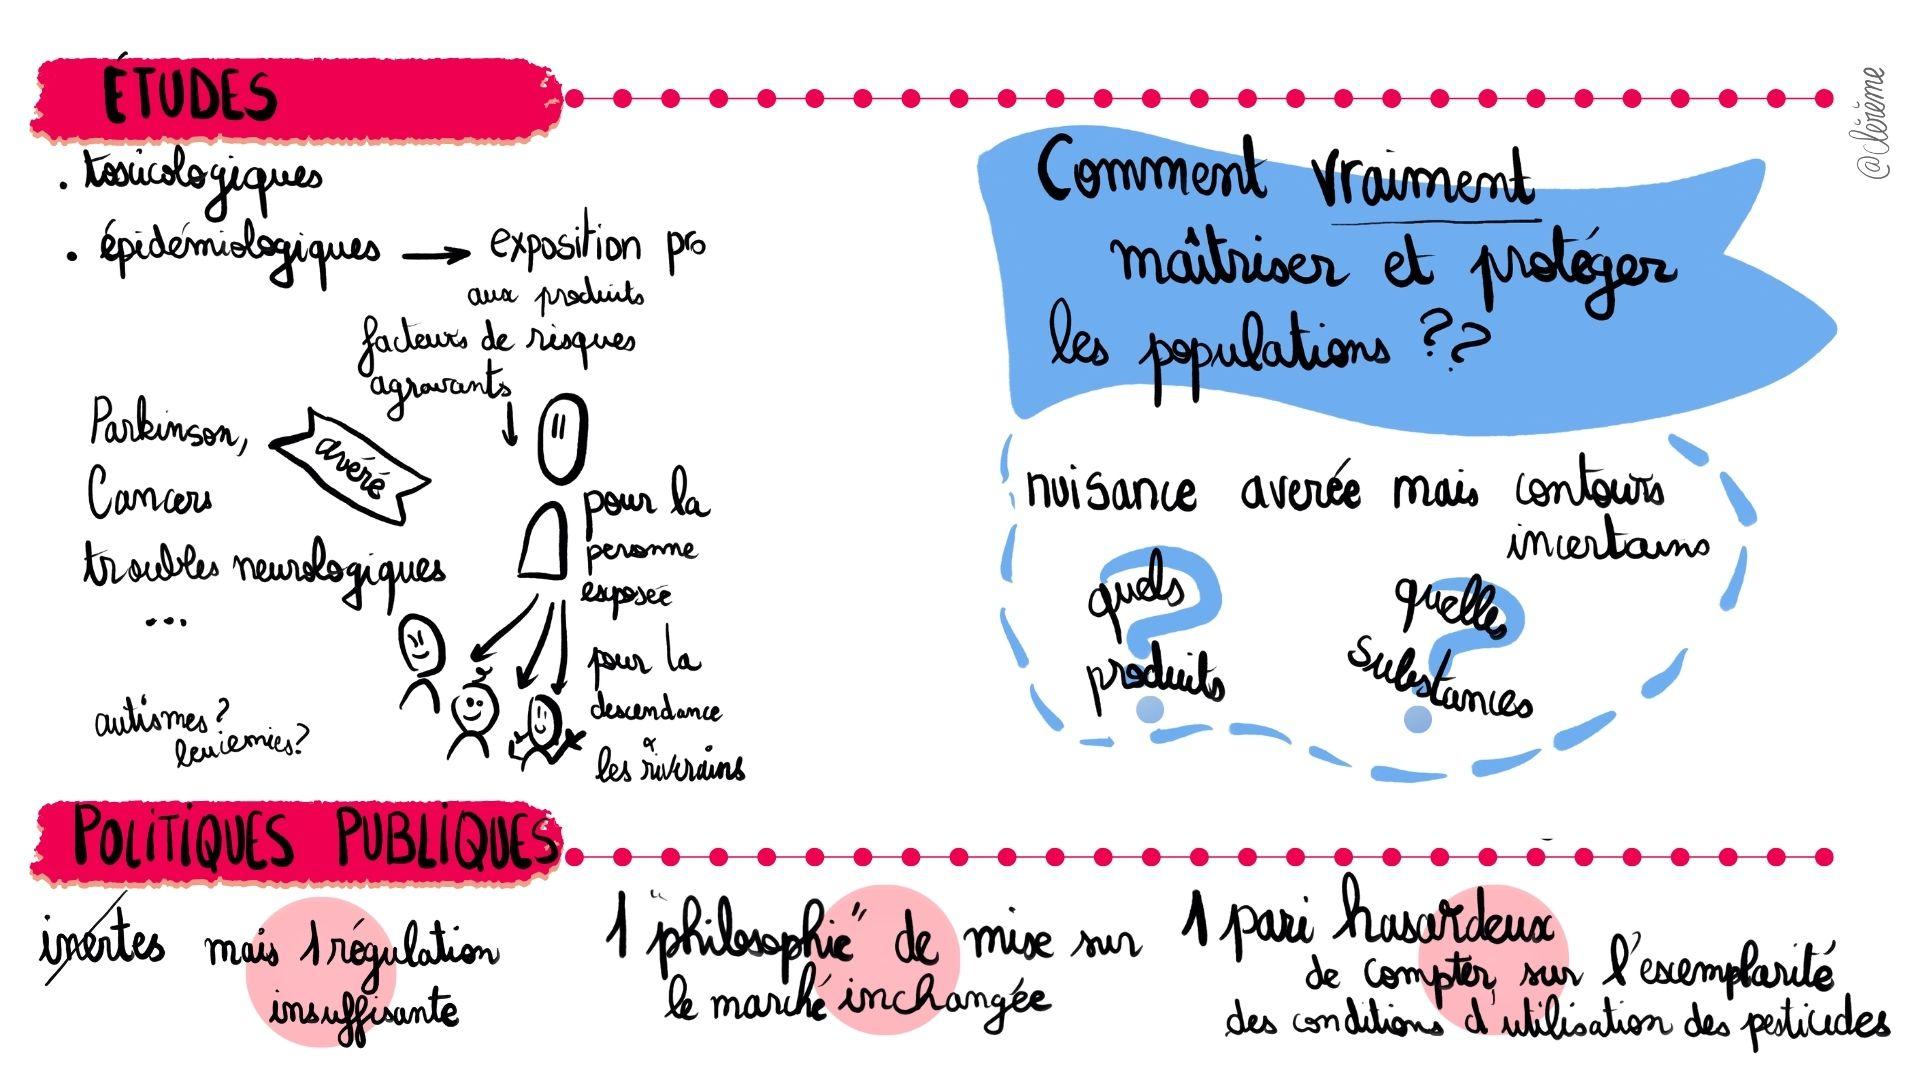 ÉTUDES
@clérème
. toxicologiques
. épidémiologiques → exposition pro
aux produits
facteurs de risques
agravants
Parkinson,
avéré
Cancers
troubles neurologiques
...
pour la
personne
exposée
pour la
descendance
&
les riverains
autismes?
leucémies?
Comment vraiment
maîtriser et protéger
les populations ??
nuisance averée mais contours
incertains
quels
produits
?
quelles
substances
?
POLITIQUES PUBLIQUES
inertes mais 1 régulation
insuffisante
1 "philosophie" de mise sur
le marché inchangée
1 pari hasardeux
de compter sur l'exemplarité
des conditions d'utilisation des pesticides